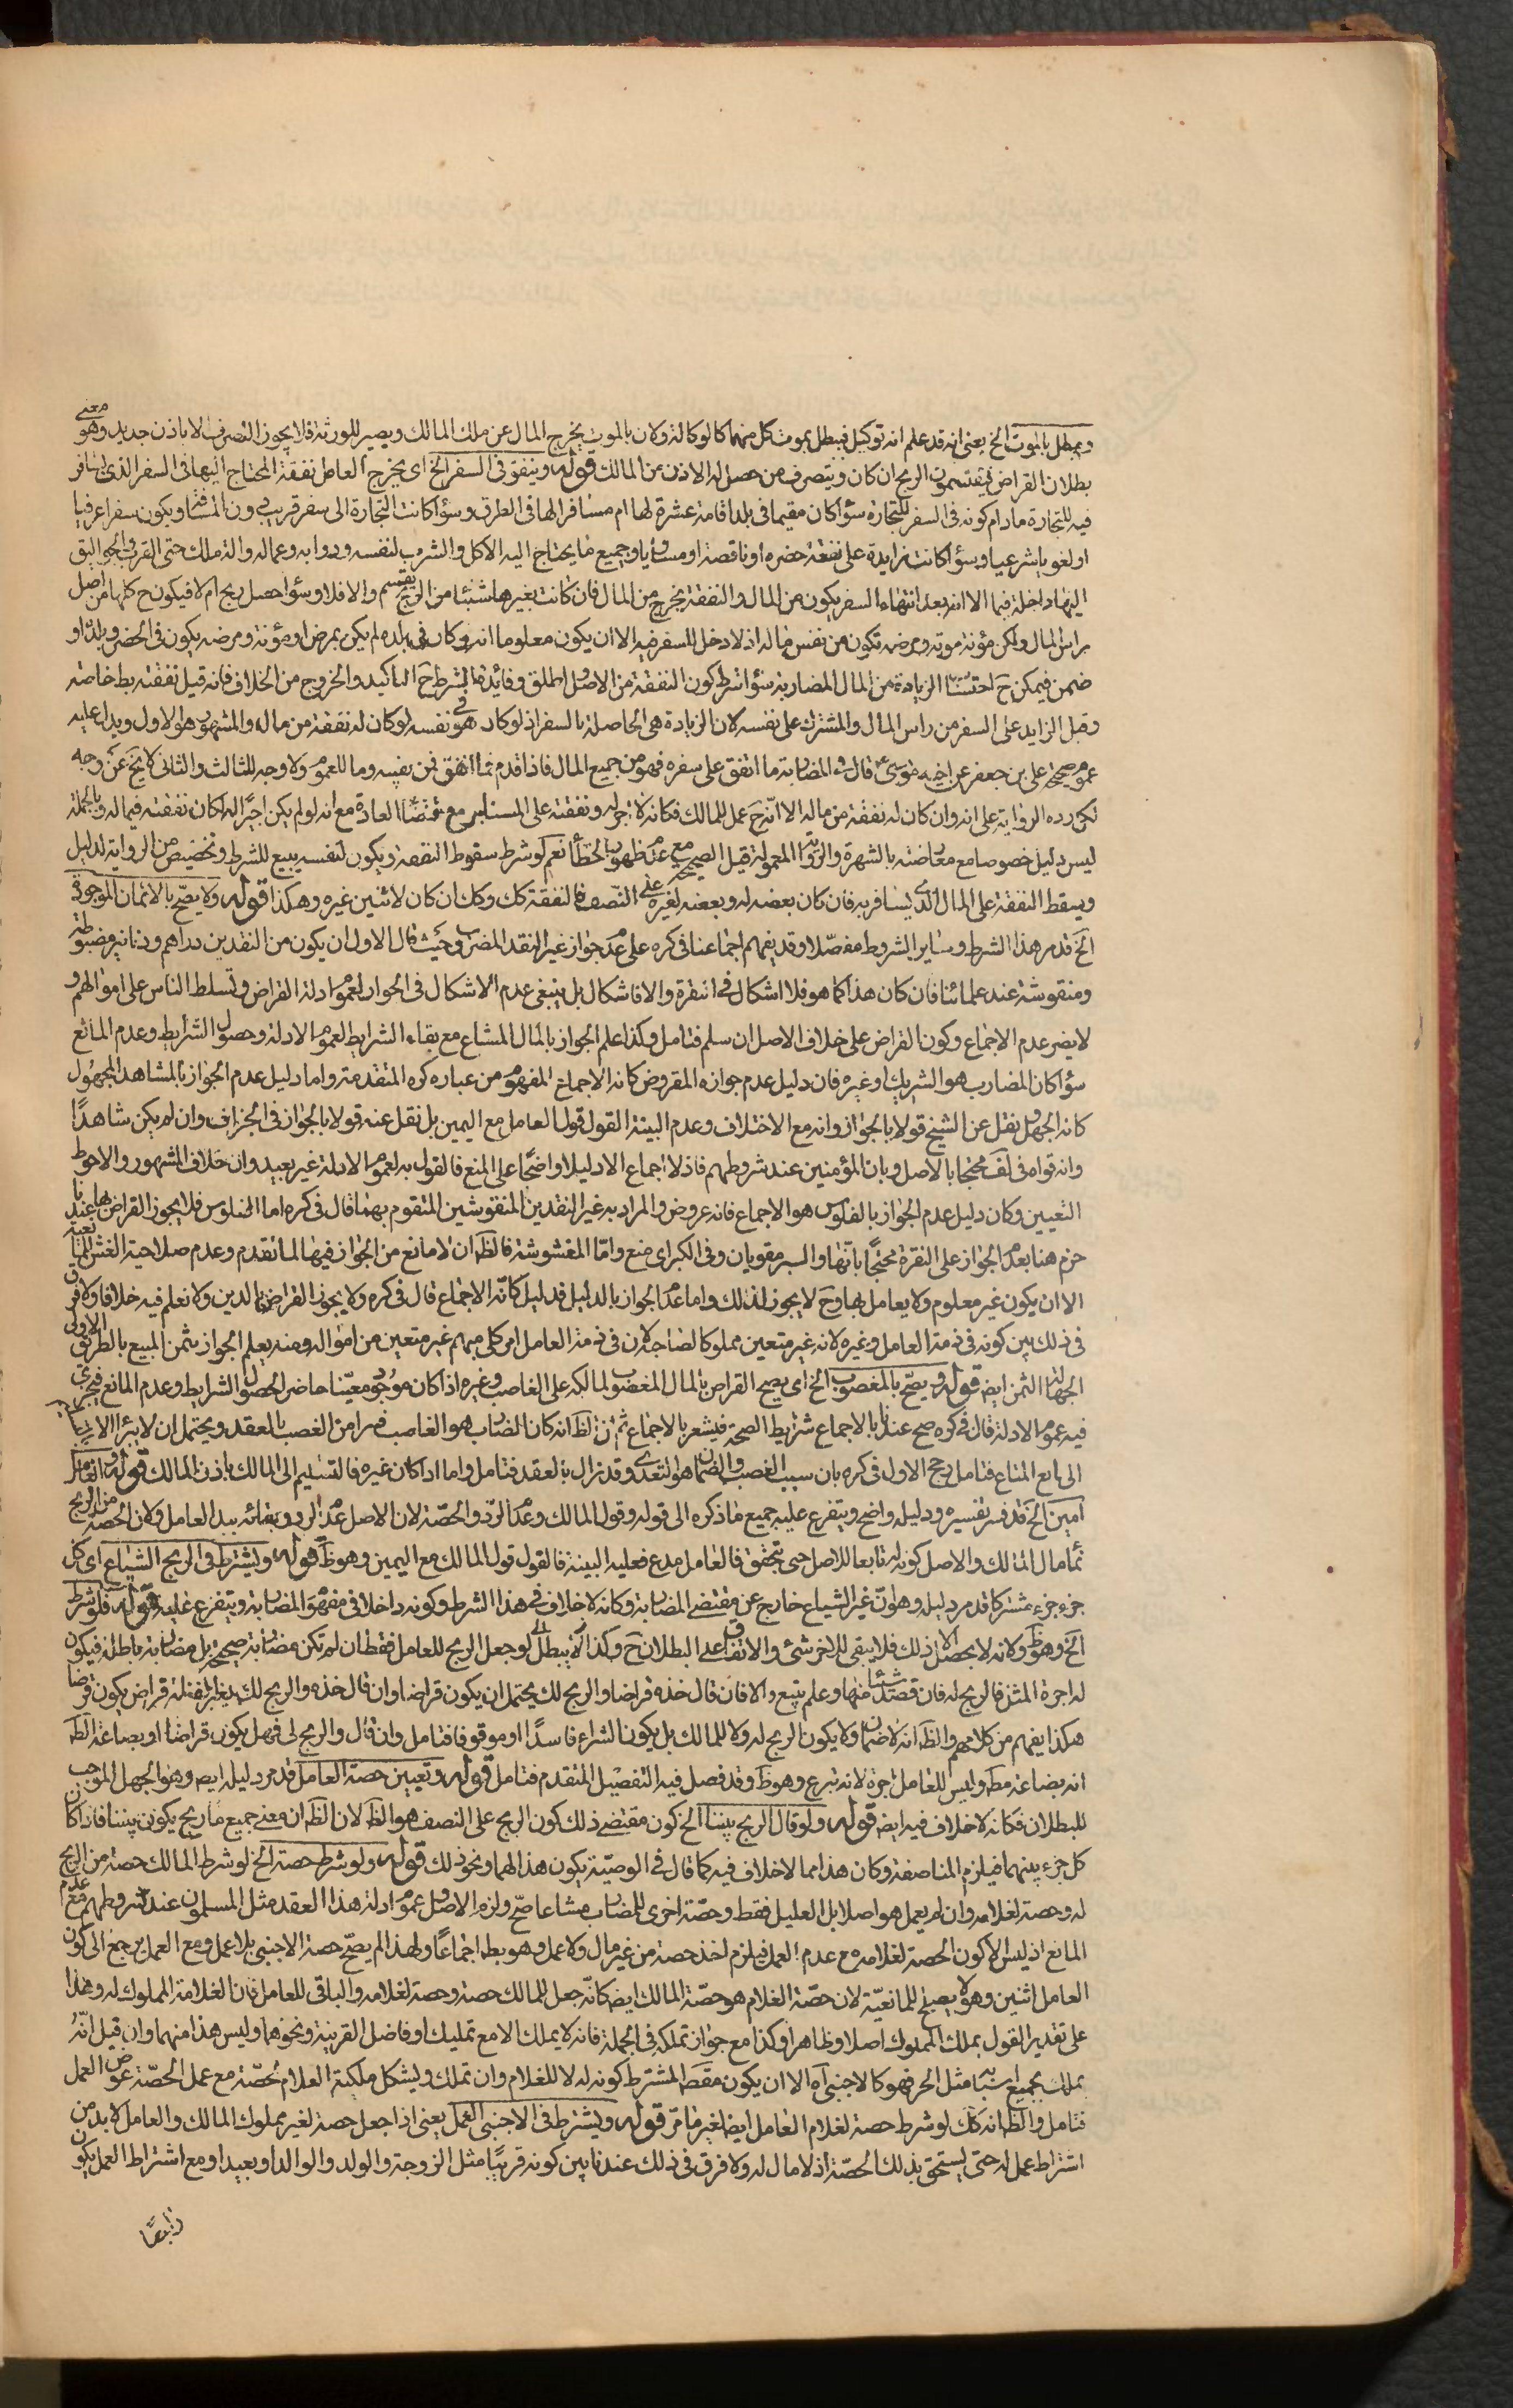 ويبطل بالموت الخ يعنى انه قد علم انه توكيل فيبطل بموت كل منهما كالوكالة ولان بالموت يخرج المال عن ملك المالك ويصير للورثة فلا يجوز التصرف الا باذن جديد وهو معنى
بطلان القراض فيقتسمون الربح ان كان ويتصرف من حصل له الاذن من المالك قوله وينفق فى السفر الخ اى يخرج العامل نفقة المحتاج اليها فى السفر الذى سافر
فيه للتجارة مادام كونه فى السفر للتجارة سواء كان مقيما فى بلد اقامة عشرة لها ام مسافرا لها فى الطرق وسواء كانت التجارة الى سفر قريب دون المسافة ويكون سفرا عرفيا
او لغويا شرعيا وسواء كانت زايدة على نفقة حضره او ناقصة او مساويا وجميع ما يحتاج اليه الاكل والشرب لنفسه ودوابه وعماله والة ملك حتى القرب
اليها داخلة فيها الا انه بعد انتهاء السفر يكون من المال والنفقة يخرج من المال فان كانت بغيرها شيئا من الربح يقسم والا فلا وسواء حصل ربح ام لا فيكون ح كلها من اصل
راس المال ولكن مؤنة موته ومرضه تكون من نفس ماله اذ لا دخل للسفر فيه الا ان يكون معلوما انه لو كان فى بلده لم يكن بمرض او مؤنة ومرضه يكون فى الحضر وبلده او
ضمن فيمكن ح احتساب الزيادة من المال المضاربة سواء شرط كون النفقة من الاصل او اطلق وفائدة الشرط ح التاكيد والخروج من الخلاف فانه قيل نفقته بط خاصة
وقيل الزايد على السفر من راس المال والمشترك على نفسه لان الزيادة هى الحاصلة بالسفر اذ لو كان هو فى نفسه لو كان له نفقة من ماله والمشهور هو الاول ويدل عليه
عموم صحيحة على بن جعفر عن اخيه موسى ع قال فى المضاربة ما انفق على سفره فهو من جميع المال فاذا قدم بما انفق فمن نفسه وما للعموم ولا وجه للثالث والثانى لا يخ عن وجه
لكن رده الرواية على انه وان كان له نفقة من ماله الا انه ح عمل للمالك فكانه لاجرله ونفقته على المستاجر مع اقتضاء العادة مع انه لو لم يكن اجيرا له لكان نفقته فيما له وبالجملة
ليس دليل خصوصا مع معارضته بالشهرة والرواية المعمولة قيل الصحيحة مع عدم ظهور الخطأ نعم لو شرط سقوط النفقة ويكون لنفسه يبيع للشرط وتخصيص من الرواية لدليل
ويسقط النفقة على المال الذى يسافر به فان كان بعضه له وبعضه لغيره على النصف فالنفقة كك وكك ان كان لاثنين غيره وهكذا قوله ولا يصح بالاثمان الموجودة
الخ قد مر هذا الشرط وساير الشروط مفصلا وقد يفهم اجماعنا فى كره على عدم جواز غير النقد المضروب حيث قال الاول ان يكون من النقدين دراهم ودنانير مضروبة
ومنقوشة عند علمائنا فان كان هذا كما هو فلا اشكال فى النقرة والا فاشكال بل ينبغى عدم الاشكال فى الجواز لعموم ادلة القراض وتسلط الناس على اموالهم و
لا يضر عدم الاجماع وكون القراض على خلاف الاصل ان سلم فتامل وكذا علم الجواز بالمال المشاع مع بقاء الشرايط لعموم الادلة وحصول الشرايط وعدم المانع
سواء كان المضارب هو الشريك او غيره فان دليل عدم جوازه المقروض كانه الاجماع المفهوم من عباره كره المتقدمة واما دليل عدم الجواز بالمشاهد المجهول
كانه الجهل ونقل عن الشيخ قولا بالجواز وانه مع الاختلاف وعدم البينة القول قول العامل مع اليمين بل نقل عنه قولا بالجواز فى الجزاف وان لم يكن شاهدًا
وانه قواه فى لف محتجا بالاصل وبان المؤمنين عند شروطهم فاذ لا اجماع ولا دليلا واضحا على المنع فالقول به لعموم الادلة غير بعيد وان خلاف المشهور والاحوط
التعيين وكان دليل عدم الجواز بالفلوس هو الاجماع فانه عروض والمراد به غير النقدين المنقوشين المتقوم بهما قال فى كره اما الفلوس فلا يجوز القراض بها عندنا
جزم هنا بعدم الجواز على النقرة محتجًا بانها والسبر مقويان وفى الكبرى منع واما المغشوشة فالظ ان لا مانع من الجواز فيها لما تقدم وعدم صلاحية الغش للمانعية
الا ان يكون غير معلوم ولا يعامل بها وح لا يجوز لذلك واما عدم الجواز بالدليل فدليل كانه الاجماع قال فى كره ولا يجوز القراض بالدين ولا نعلم فيه خلافا ولا فرق
فى ذلك بين كونه فى ذمة العامل وغيره لانه غير متعين مملوكا لصاحبه لان فى ذمة العامل امر كلى مبهم غير متعين من امواله ومنه يعلم الجواز بثمن المبيع بالطريق الاولى
لجهالة الثمن ايضا قوله ويصح بالمغصوب الخ اى يصح القراض بالمال المغصوب لمالكه على الغاصب وغيره اذا كان موجودا معينا حاضرا لحصول الشرايط وعدم المانع فيجرى
فيه عموم الادلة قال فى كره صح عندنا بالاجماع شرايط الصحة فيشعر بالاجماع ثم ان الظ انه كان المضارب هو الغاصب فبرا من الغصب بالعقد ويحتمل ان لا يبرأ الا
الى بايع المتاع فتامل رجح الاول فى كره بان سبب الغصب والضمان هو التعدى وقد زال بالعقد فتامل واما اذا كان غيره فالتسليم الى المالك باذن المالك قوله والعامل
امين الخ قد فسر تفسيره ودليله واضح ويتفرع عليه جميع ما ذكره الى قوله وقول المالك وعدم الرد والحصة لان الاصل عدم الرد وبقائه بيد العامل ولان الحصة من الربح
نماء مال المالك والاصل كونه له تابعا للاصل حتى يتحقق فالعامل مدع فعليه البينة فالقول قول المالك مع اليمين وهو ظ قوله ويشترط فى الربح الشياع اى كل
جزء جزء مشتركا قد مر دليله وهو ان غير الشياع خارج عن مقتضى المضاربة وكانه لا خلاف فى هذا الشرط وكونه داخلا فى مفهوم المضاربة ويتفرع عليه قوله فلو شرط
الخ وهو ظ ولانه لا يحصل الا ذلك فلا يبقى للاخر شئ والاتفاق على البطلان ح وكذا لا يبطل لو جعل الربح للعامل فقط ان لم تكن مضاربة صحيحة بل مضاربة باطلة فيكون
له اجرة المثل فالربح له فان قصد شيئا منها وعلم يتبع والا فان قال خذه قراضا والربح لك يحتمل ان يكون قراضا وان قال خذه والربح لك بغير لفظ قراض يكون قرضا
هكذا يفهم من كلامهم والظ انه لا ضمان ولا يكون الربح له ولا للمالك بل يكون الشراء فاسدًا او موقوفا فتامل وان قال والربح لى فهل يكون قراضا او بضاعة الظ
انه بضاعة مط وليس للعامل اجرة لانه تبرع وهو ظ وقد فصل فيه التفصيل المتقدم فتامل قوله وتعيين حصة العامل قد مر دليله ايضا وهو الجهل الموجب
للبطلان فكانه لا خلاف فيه ايضا قوله ولو قال الربح بيننا الخ كون مقتضى ذلك كون الربح على النصف هو الظ لان الظ ان معنى جميع ما ربح يكون بيننا فاذا كان
كل جزء بينهما فيلزم المناصفة وكان هذا مما لا خلاف فيه كما قال فى الوصية يكون هذا لهما ونحو ذلك قوله ولو شرط حصة الخ لو شرط المالك حصة من الربح
له وحصة لغلامه وان لم يعمل هو اصلا بل العليل فقط وحصة اخرى للمضارب مشاعا صح ولزم الاصل وعموم ادلة هذا العقد مثل المسلمون عند شروطهم مع عدم
المانع اذ ليس الا كون الحصة لغلامه مع عدم العمل فيلزم اخذ حصة من غير مال ولا عمل وهو بط اجماعًا ولهذا لم يصح حصة الاجنبى بلا عمل ومع العمل يرجع الى كون
العامل اثنين وهو لا يصلح للمانعية لان حصة الغلام هو حصة المالك ايضا كانه جعل للمالك حصة وحصة لغلامه والباقى للعامل فان الغلامة المملوك له وهذا
على تقدير القول بملك المملوك اصلا وظاهرا وكذا مع جواز تملكه فى الجملة فانه لا يملك الا مع تمليك او فاضل القرنية ونحوها وليس هذا منهما وان قيل انه
يملك بجميع اسبابه مثل الحر فهو كالاجنبى اه الا ان يكون مقصد المشترط كونه له لا للغلام وان تملك ويشكل ملكية الغلام حصة مع عمل الحصة عوض العمل
فتامل والظ انه كك لو شرط حصة لغلام العامل ايضا لغير ما مر قوله ويشترط فى الاجنبى العمل يعنى اذا جعل حصة لغير مملوك المالك والعامل لابد من
اشتراط عمل له حتى يستحق بذلك الحصة اذ لا مال له ولا فرق فى ذلك عندنا بين كونه قريبًا مثل الزوجة والولد والوالد او بعيدا ومع اشتراط العمل يكون